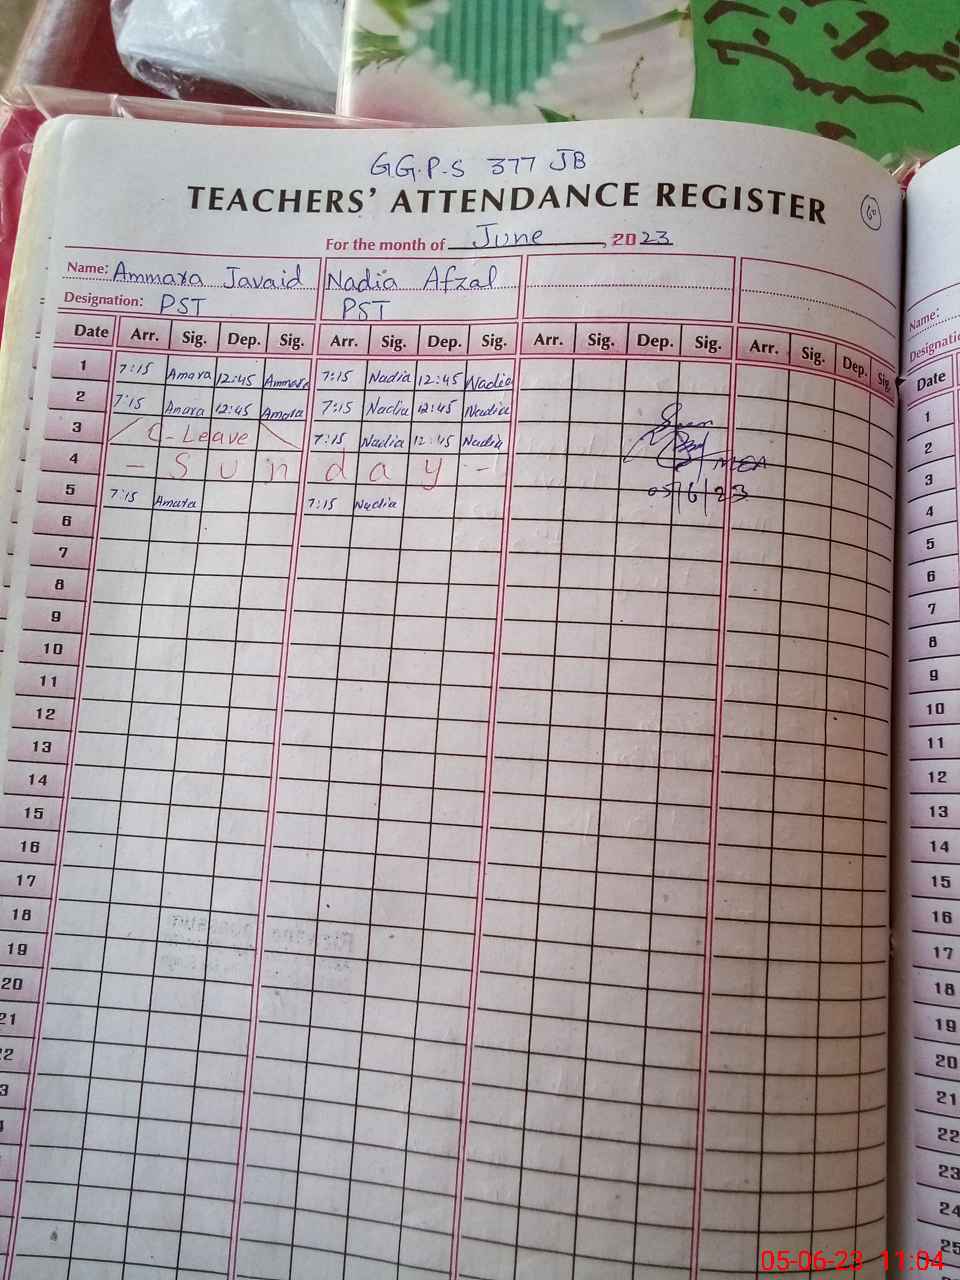 G.G.P.S 377 JB
TEACHERS' ATTENDANCE REGISTER
60
For the month of June, 2023
Name: Ammara Javaid Nadia Afzal
Designation: PST PST
Date Arr. Sig. Dep. Sig. Arr. Sig. Dep. Sig. Arr. Sig. Dep. Sig. Arr. Sig. Dep. Sig.
1 7:15 Amara 12:45 Ammara 7:15 Nadia 12:45 Nadia
2 7:15 Amara 12:45 Amara 7:15 Nadia 12:45 Nadia
3 C-Leave 7:15 Nadia 12:45 Nadia
4 - Sunday -
5 7:15 Amara 7:15 Nadia
Seen
MEA
05/6/23
6
7
8
9
10
11
12
13
14
15
16
17
18
19
20
21
22
Name:
Designatio
Date
1
2
3
4
5
6
7
8
9
10
11
12
13
14
15
16
17
18
19
20
21
22
23
24
25
05-06-23 11:04